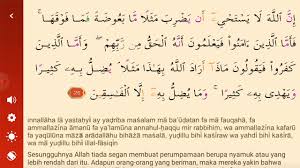 إِنَّ اللَّهَ لَا يَسْتَحْيِۦٓ أَن يَضْرِبَ مَثَلًا مَّا بَعُوضَةً فَمَا فَوْقَهَا ۚ
فَأَمَّا الَّذِينَ ءَامَنُوا۟ فَيَعْلَمُونَ أَنَّهُ الْحَقُّ مِن رَّبِّهِمْ ۖ وَأَمَّا الَّذِينَ
كَفَرُوا۟ فَيَقُولُونَ مَاذَآ أَرَادَ اللَّهُ بِهَٰذَا مَثَلًا ۘ يُضِلُّ بِهِۦ كَثِيرًا
وَيَهْدِى بِهِۦ كَثِيرًا ۚ وَمَا يُضِلُّ بِهِۦٓ إِلَّا الْفَٰسِقِينَ 26
innallāha lā yastaḥyī ay yaḍriba maṡalam mā ba'ụḍatan fa mā fauqahā, fa
ammallażīna āmanụ fa ya'lamụna annahul-ḥaqqu mir rabbihim, wa ammallażīna kafarụ
fa yaqụlụna māżā arādallāhu bihāżā maṡalā, yuḍillu bihī kaṡīraw wa yahdī bihī kaṡīrā,
wa mā yuḍillu bihī illal-fāsiqīn
Sesungguhnya Allah tiada segan membuat perumpamaan berupa nyamuk atau yang
lebih rendah dari itu. Adapun orang-orang yang beriman, maka mereka yakin bahwa